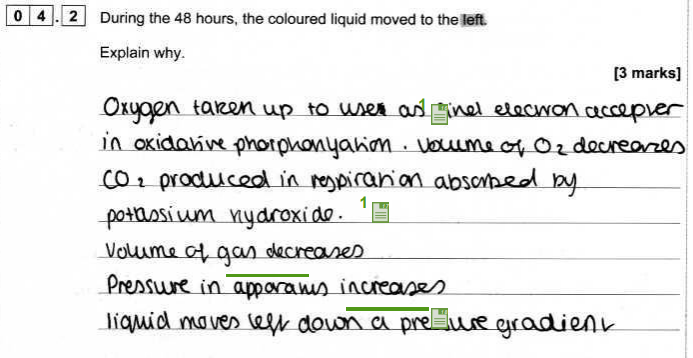 04.2 During the 48 hours, the coloured liquid moved to the left.
Explain why.
[3 marks]
Oxygen taken up to use as 1 final electron accepter
in oxidative phosphorylation. Volume of O2 decreases
CO2 produced in respiration absorbed by
potassium hydroxide. 1
Volume of gas decreases
Pressure in apparatus increases
liquid moves left down a pressure gradient